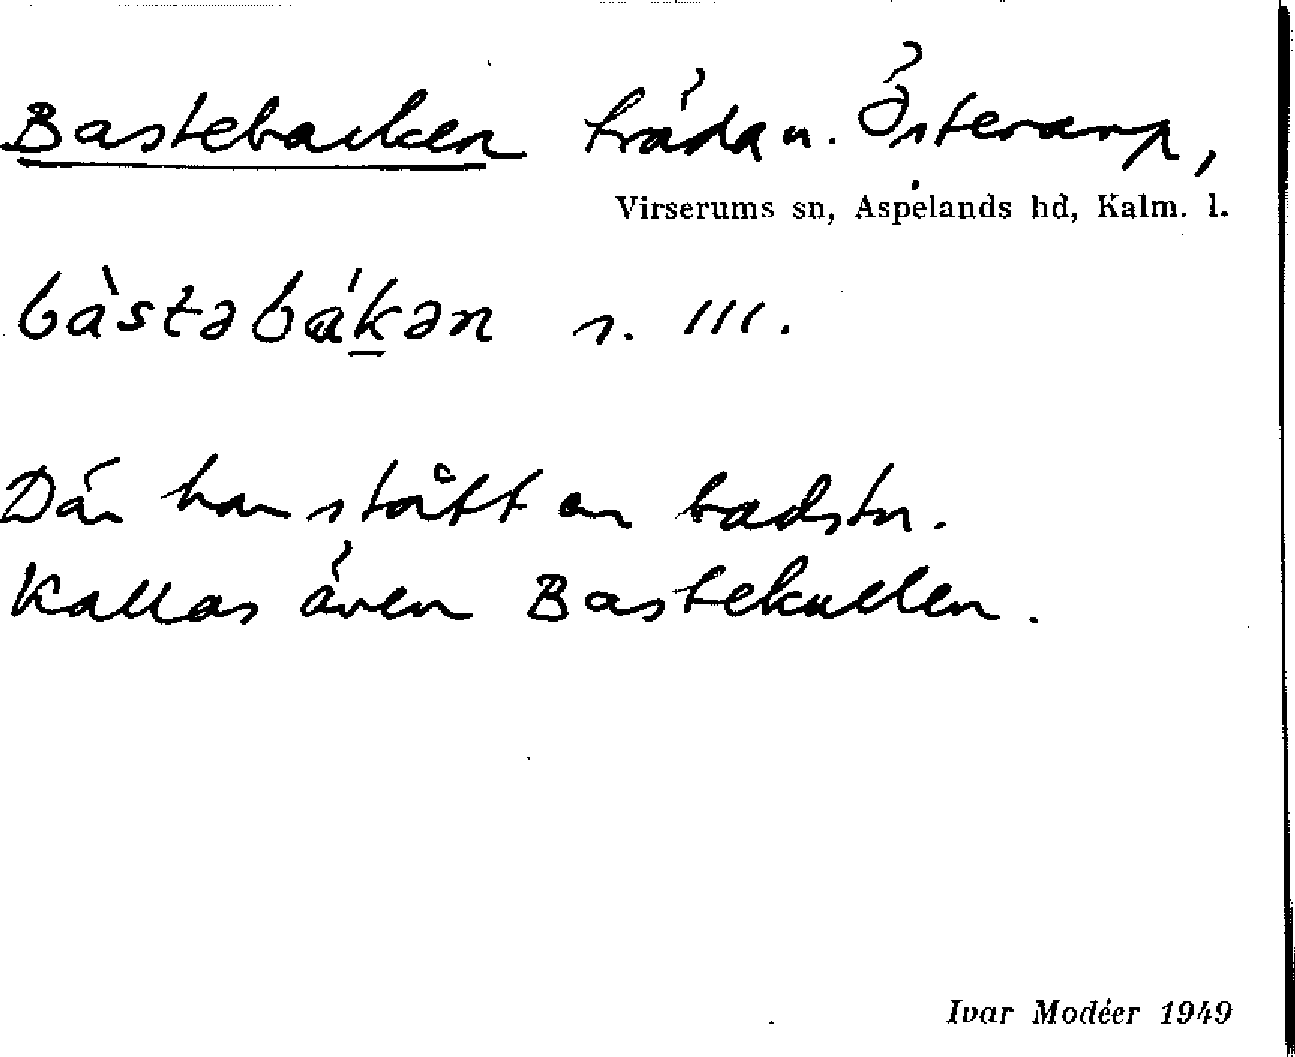 Bastebacken träda u. Österarp,
Virserums sn, Aspelands hd, Kalm. l.
bàstəbákən r. III.
Där har stått en badstu.
Kallas även Bastekullen.
Ivar Modéer 1949